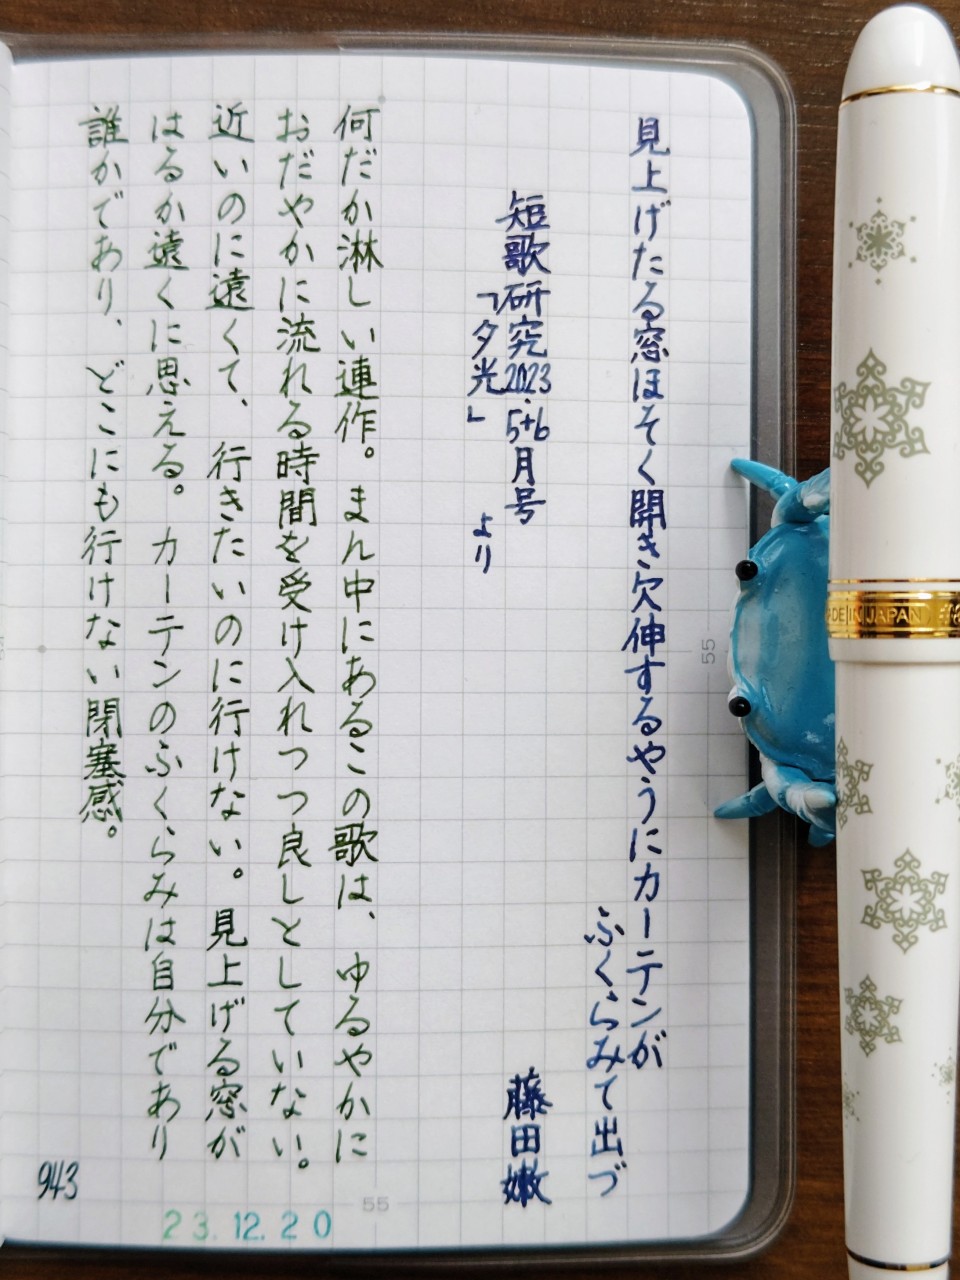 見上げたる窓ほそく開き欠伸するやうにカーテンが
ふくらみて出づ
短歌研究2023.5+6月号
「夕光」より
藤田嫩
何だか淋しい連作。まん中にあるこの歌は、ゆるやかに
おだやかに流れる時間を受け入れつつ良しとしていない。
近いのに遠くて、行きたいのに行けない。見上げる窓が
はるか遠くに思える。カーテンのふくらみは自分であり
誰かであり、どこにも行けない閉塞感。
943
23.12.20
55
55
MADE IN JAPAN